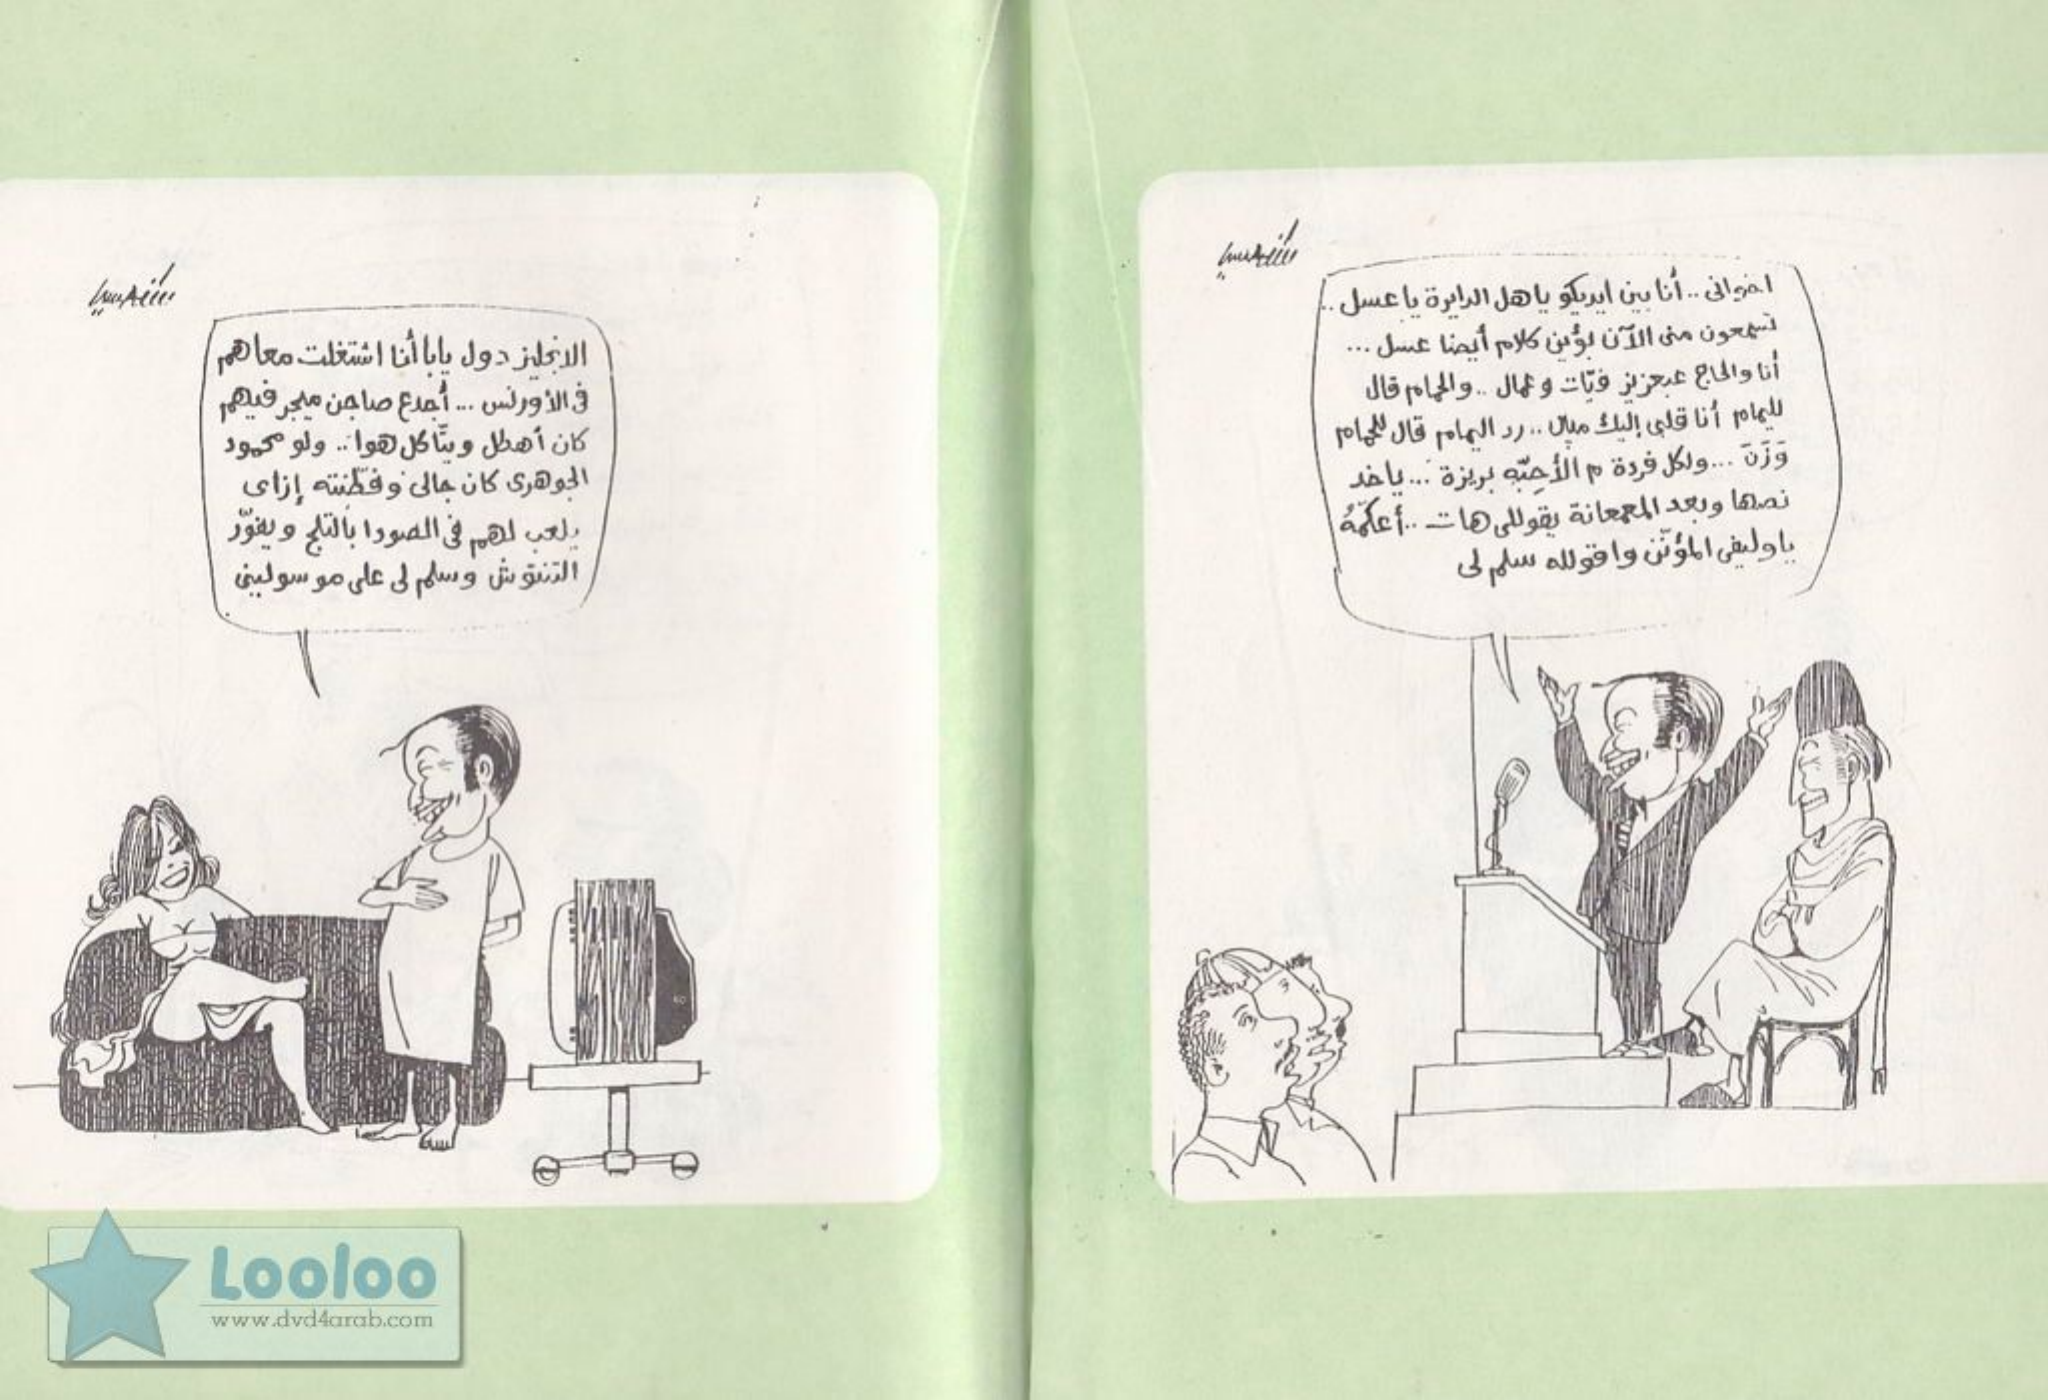 اخوانى .. أنا بين ايديكو ياهل الدايرة يا عسل ..
تسمعون منى الآن بؤين كلام أيضا عسل ...
أنا والحاج عبعزيز فيّات وعمال .. والحمام قال
لليمام أنا قلبى إليك ميال .. رد اليمام قال للحمام
وَزَنّ ... ولكل فردة م الأحِبّه بريزة ... ياخد
نصها وبعد المعمعانة يقوللى هات .. أعكّمهُ
ياوليفى المؤتّن واقولله سلم لى
الانجليز دول يابا أنا اشتغلت معاهم
فى الأورنس ... أجدع صاجن ميجر فيهم
كان أهطل وبتّاكل هوا .. ولو محمود
الجوهرى كان جالى وفطّنته إزاى
يلعب لهم فى الصودا بالتلج ويفوّر
التنتوش وسلم لى على موسولينى
Looloo
www.dvd4arab.com